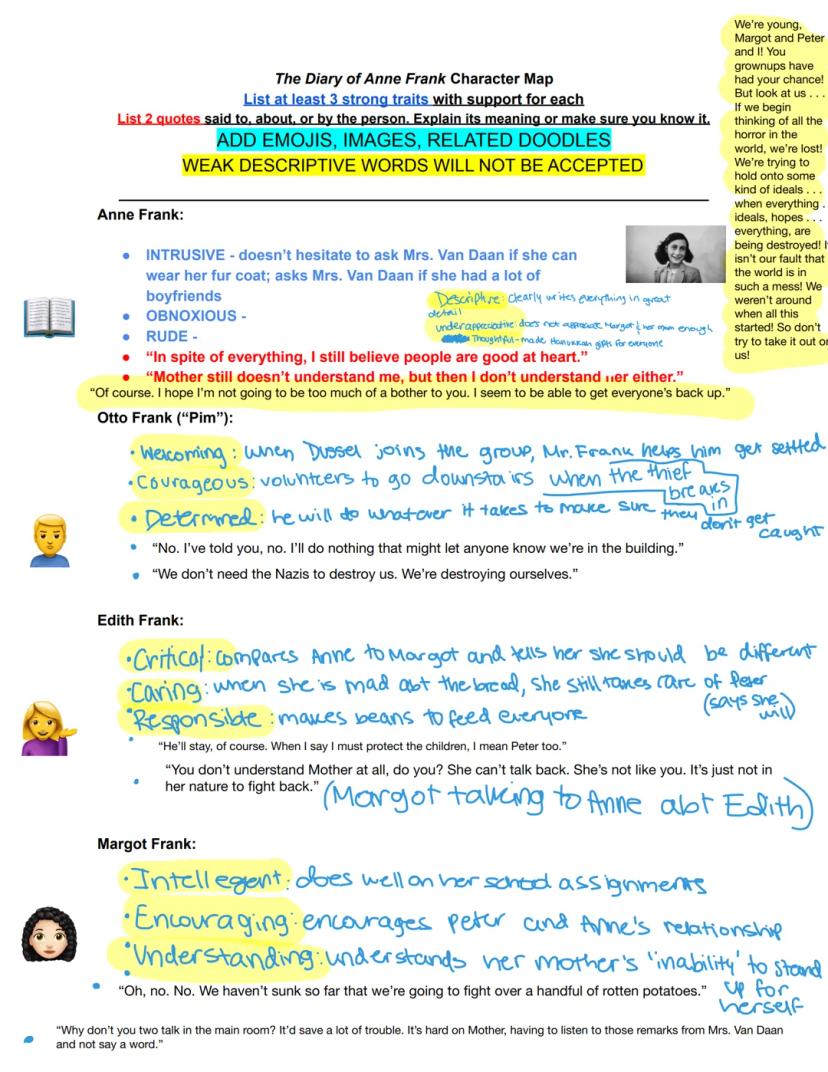 The Diary of Anne Frank Character Map
List at least 3 strong traits with support for each
List 2 quotes said to, about, or by the person. Explain its meaning or make sure you know it.
ADD EMOJIS, IMAGES, RELATED DOODLES
WEAK DESCRIPTIVE WORDS WILL NOT BE ACCEPTED
We're young,
Margot and Peter
and I! You
grownups have
had your chance!
But look at us . . .
If we begin
thinking of all the
horror in the
world, we're lost!
We're trying to
hold onto some
kind of ideals . . .
when everything .
ideals, hopes . . .
everything, are
being destroyed! I
isn't our fault that
the world is in
such a mess! We
weren't around
when all this
started! So don't
try to take it out or
us!
Anne Frank:
• INTRUSIVE - doesn't hesitate to ask Mrs. Van Daan if she can
wear her fur coat; asks Mrs. Van Daan if she had a lot of
boyfriends
• OBNOXIOUS -
• RUDE -
Descriptive: clearly writes everything in great
detail
underappreciative: does not appreciate Margot & her mom enough
Thoughtful - made Hanukkah gifts for everyone
• "In spite of everything, I still believe people are good at heart."
• "Mother still doesn't understand me, but then I don't understand her either."
"Of course. I hope I'm not going to be too much of a bother to you. I seem to be able to get everyone's back up."
Otto Frank ("Pim"):
• Welcoming: when Dussel joins the group, Mr. Frank helps him get settled
• Courageous: volunteers to go downstairs when the thief
breaks
in
• Determined: he will do whatever it takes to make sure they
don't get
caught
• "No. I've told you, no. I'll do nothing that might let anyone know we're in the building."
• "We don't need the Nazis to destroy us. We're destroying ourselves."
Edith Frank:
• Critical: compares Anne to Margot and tells her she should be different
• Caring: when she is mad abt the bread, she still takes care of Peter
(says she
will)
• Responsible: makes beans to feed everyone
• "He'll stay, of course. When I say I must protect the children, I mean Peter too."
• "You don't understand Mother at all, do you? She can't talk back. She's not like you. It's just not in
her nature to fight back." (Margot talking to Anne abt Edith)
Margot Frank:
• Intellegent: does well on her school assignments
• Encouraging: encourages Peter and Anne's relationship
• Understanding: understands her mother's 'inability' to stand
up for
herself
• "Oh, no. No. We haven't sunk so far that we're going to fight over a handful of rotten potatoes."
• "Why don't you two talk in the main room? It'd save a lot of trouble. It's hard on Mother, having to listen to those remarks from Mrs. Van Daan
and not say a word."